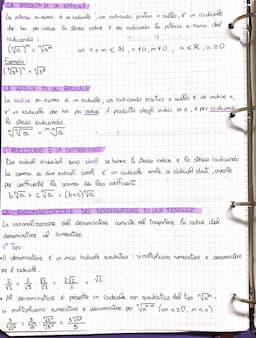 LA POTENZA DI UN RADICALE
La potenza m-esima di un radicale, con radicando positivo o nullo, è un radicale
che ha per indice lo stesso indice e per radicando la potenza m-esima del
radicando:
(ⁿ√a)ᵐ = ⁿ√aᵐ con n e m ∈ N, n≠0, m≠0, a ∈ R, a≥0
Esempio:
LA RADICE DI UN RADICALE
La radice m-esima di un radicale, con radicando positivo o nullo e con indice n,
è un radicale che ha per indice il prodotto degli indici m n, e per radicando
lo stesso radicando
ᵐ√ⁿ√a = ᵐⁿ√a
L'ADDIZIONE E LA SOTTRAZIONE
Due radicali irriducibili sono simili se hanno lo stesso indice e lo stesso radicando
La somma di due radicali simili è un radicale simile ai radicali dati, avente
per coefficiente la somma dei loro coefficienti
b ⁿ√a + c ⁿ√a = (b+c) ⁿ√a
LA RAZIONALIZZAZIONE DEL DENOMINATORE DI UNA FRAZIONE
La razionalizzazione del denominatore consiste nel trasportare la radice dal
denominatore al numeratore
1° Tipo
• Al denominatore è un unico radicale quadratico: si moltiplicano numeratore e denominatore
per il radicale.
2/√2 = 2/√2 · √2/√2 = 2√2/2 = √2
• Al denominatore è presente un radicale non quadratico del tipo ⁿ√aᵐ:
si moltiplicano numeratore e denominatore per ⁿ√aⁿ⁻ᵐ (con a≥0, m<n)